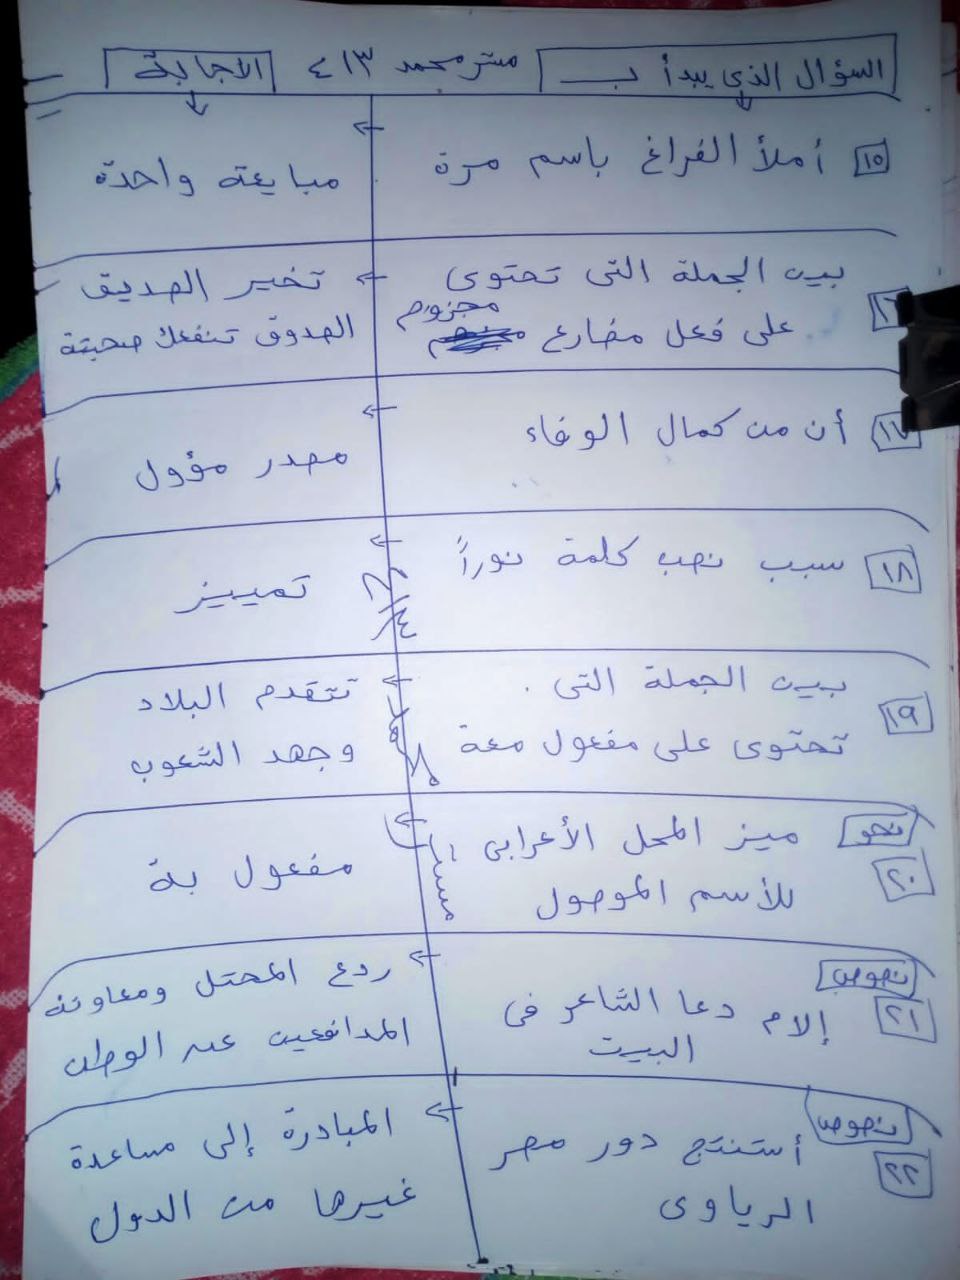 السؤال الذي يبدأ بـ مستر محمد ٤١٣ الاجابة
١٥ أملأ الفراغ باسم مرة
مبايعته واحدة
١٦ بين الجملة التى تحتوى
على فعل مضارع مجزوم
تخير الصديق
الصدوق تنفعك صحبتة
١٧ أن من كمال الوفاء
مصدر مؤول
١٨ سبب نصب كلمة نوراً
تمييز
١٩ بين الجملة التى
تحتوى على مفعول معة
تتقدم البلاد
وجهد الشعوب
نحو
٢٠ ميز المحل الأعرابى
للأسم الموصول
مفعول بة
نصوص
٢١ إلام دعا الشاعر فى
البيت
ردع المحتل ومعاونة
المدافعين عن الوطن
نصوص
٢٢ أستنتج دور مصر
الرياوى
المبادرة إلى مساعدة
غيرها من الدول